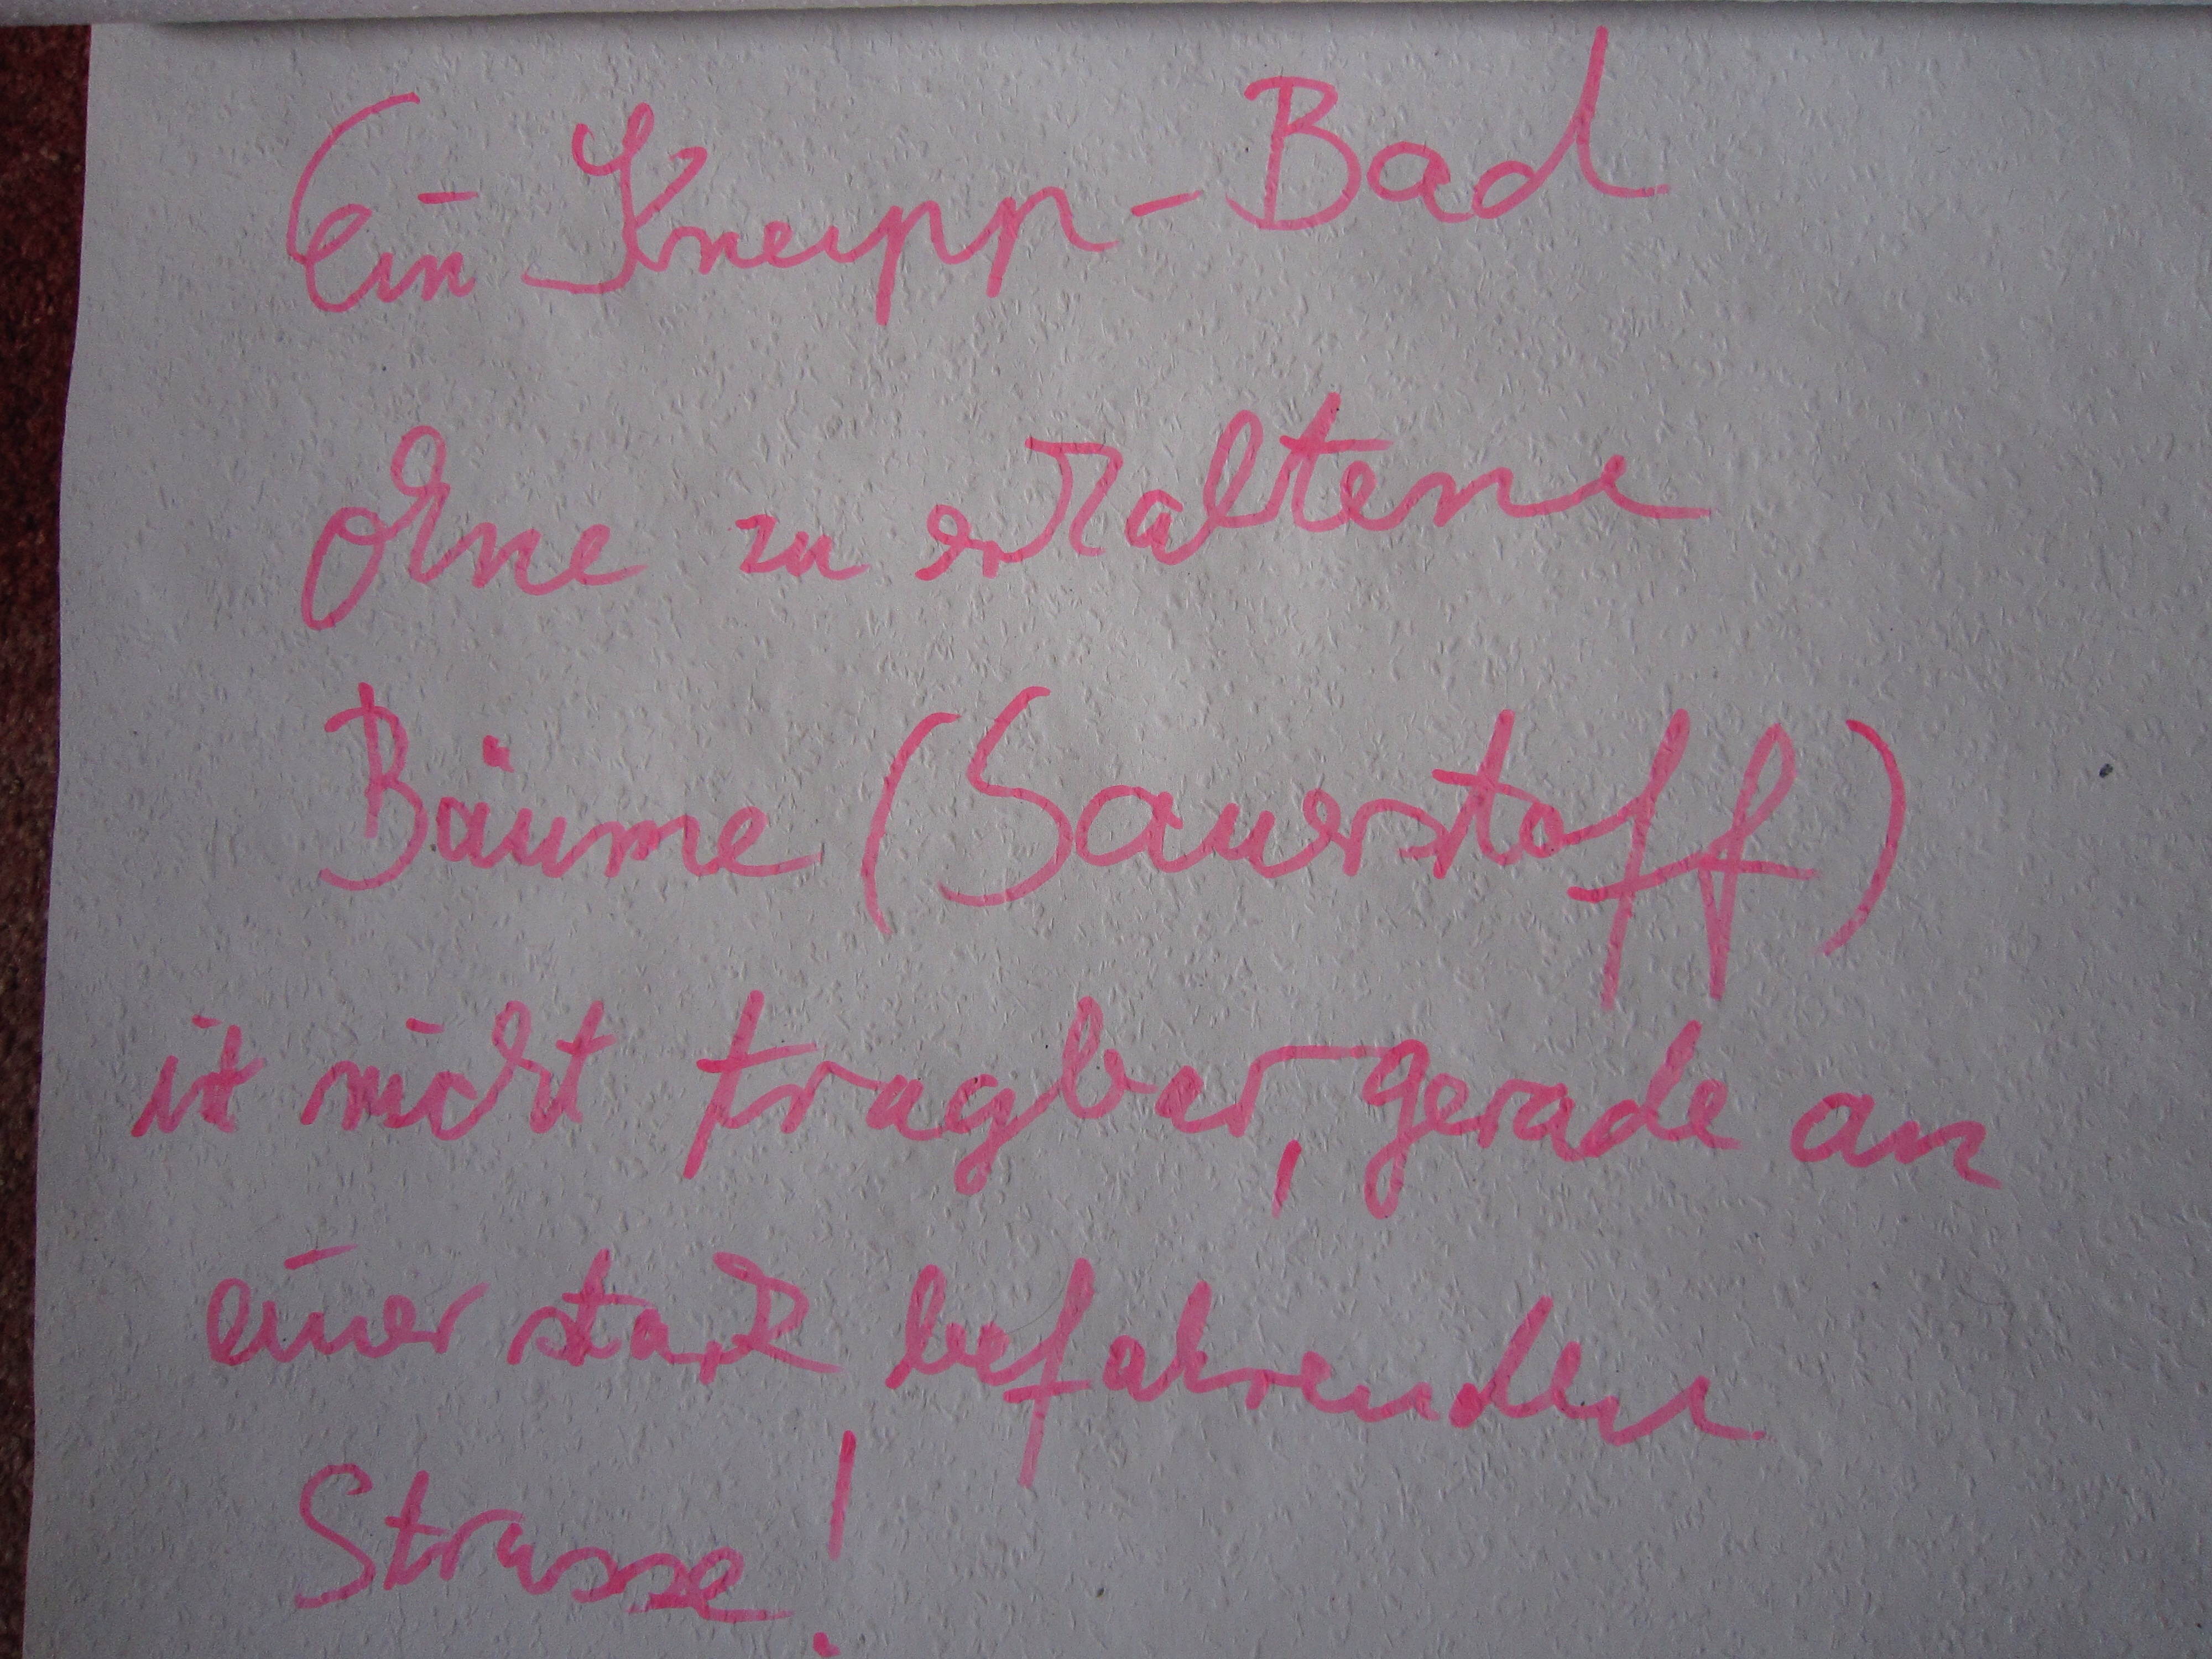 Ein Kneipp-Bad
ohne zu erhaltene
Bäume (Sauerstoff)
ist nicht tragbar, gerade an
einer stark befahrenden
Strasse!